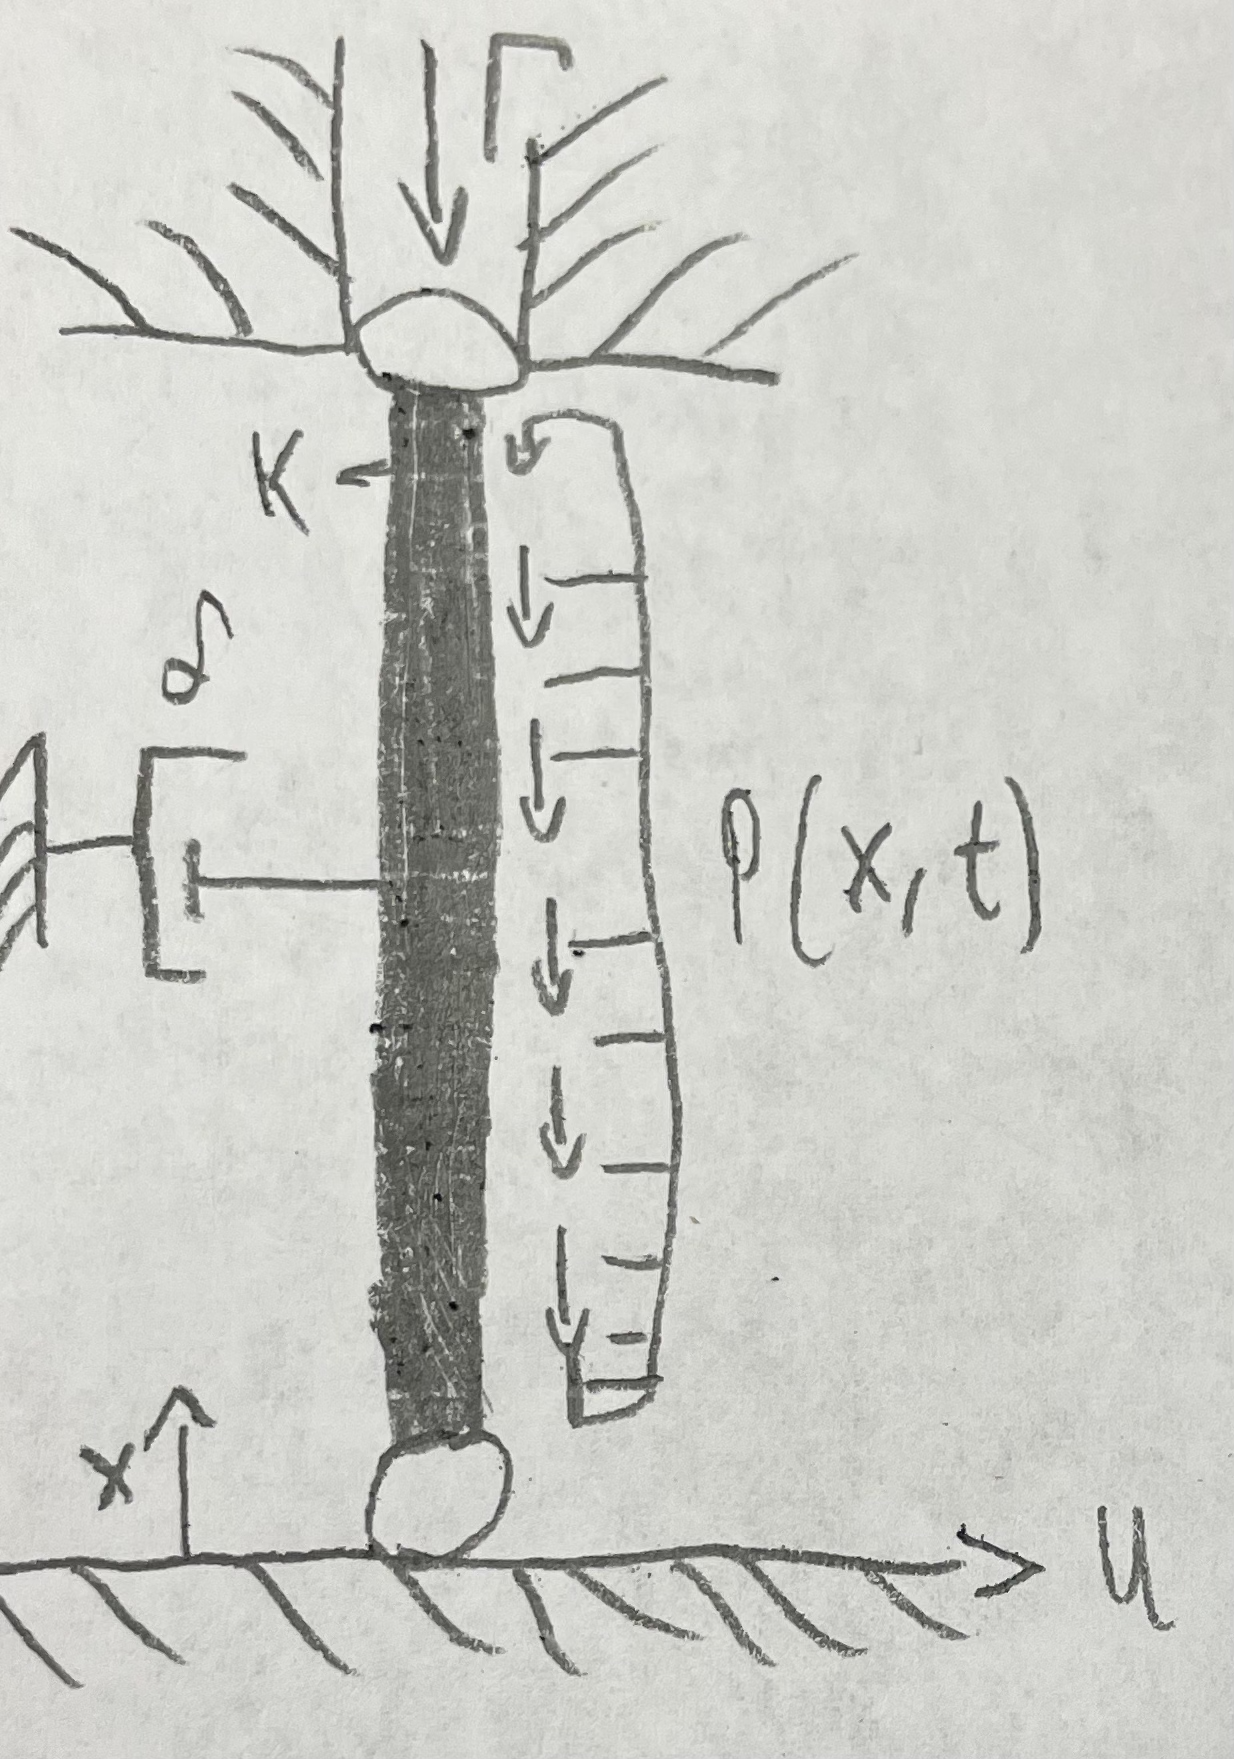 Γ
K
δ
P(x,t)
x
u